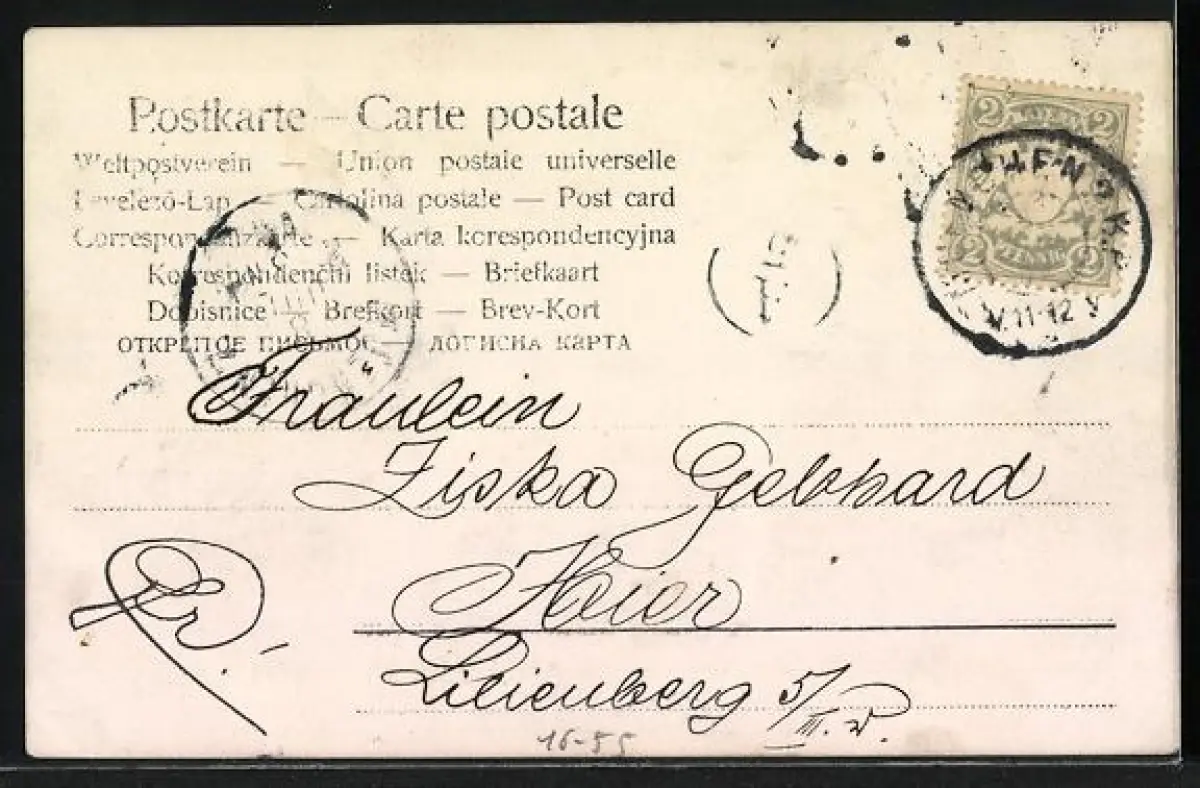 Postkarte — Carte postale
Weltpostverein — Union postale universelle
Levelező-Lap — Cartolina postale — Post card
Correspondenzkarte — Karta korespondencyjna
Korrespondenční listek — Briefkaart
Dopisnice — Brefkort — Brev-Kort
ОТКРЫТОЕ ПИСЬМО — ДОПИСНА КАРТА
2 BAYERN 2
2 PFENNIG 2
MÜNCHEN 2
V. 11-12
Fräulein
Ziska Gebhard
Hier
Lilienberg 5/III. r.
16-55